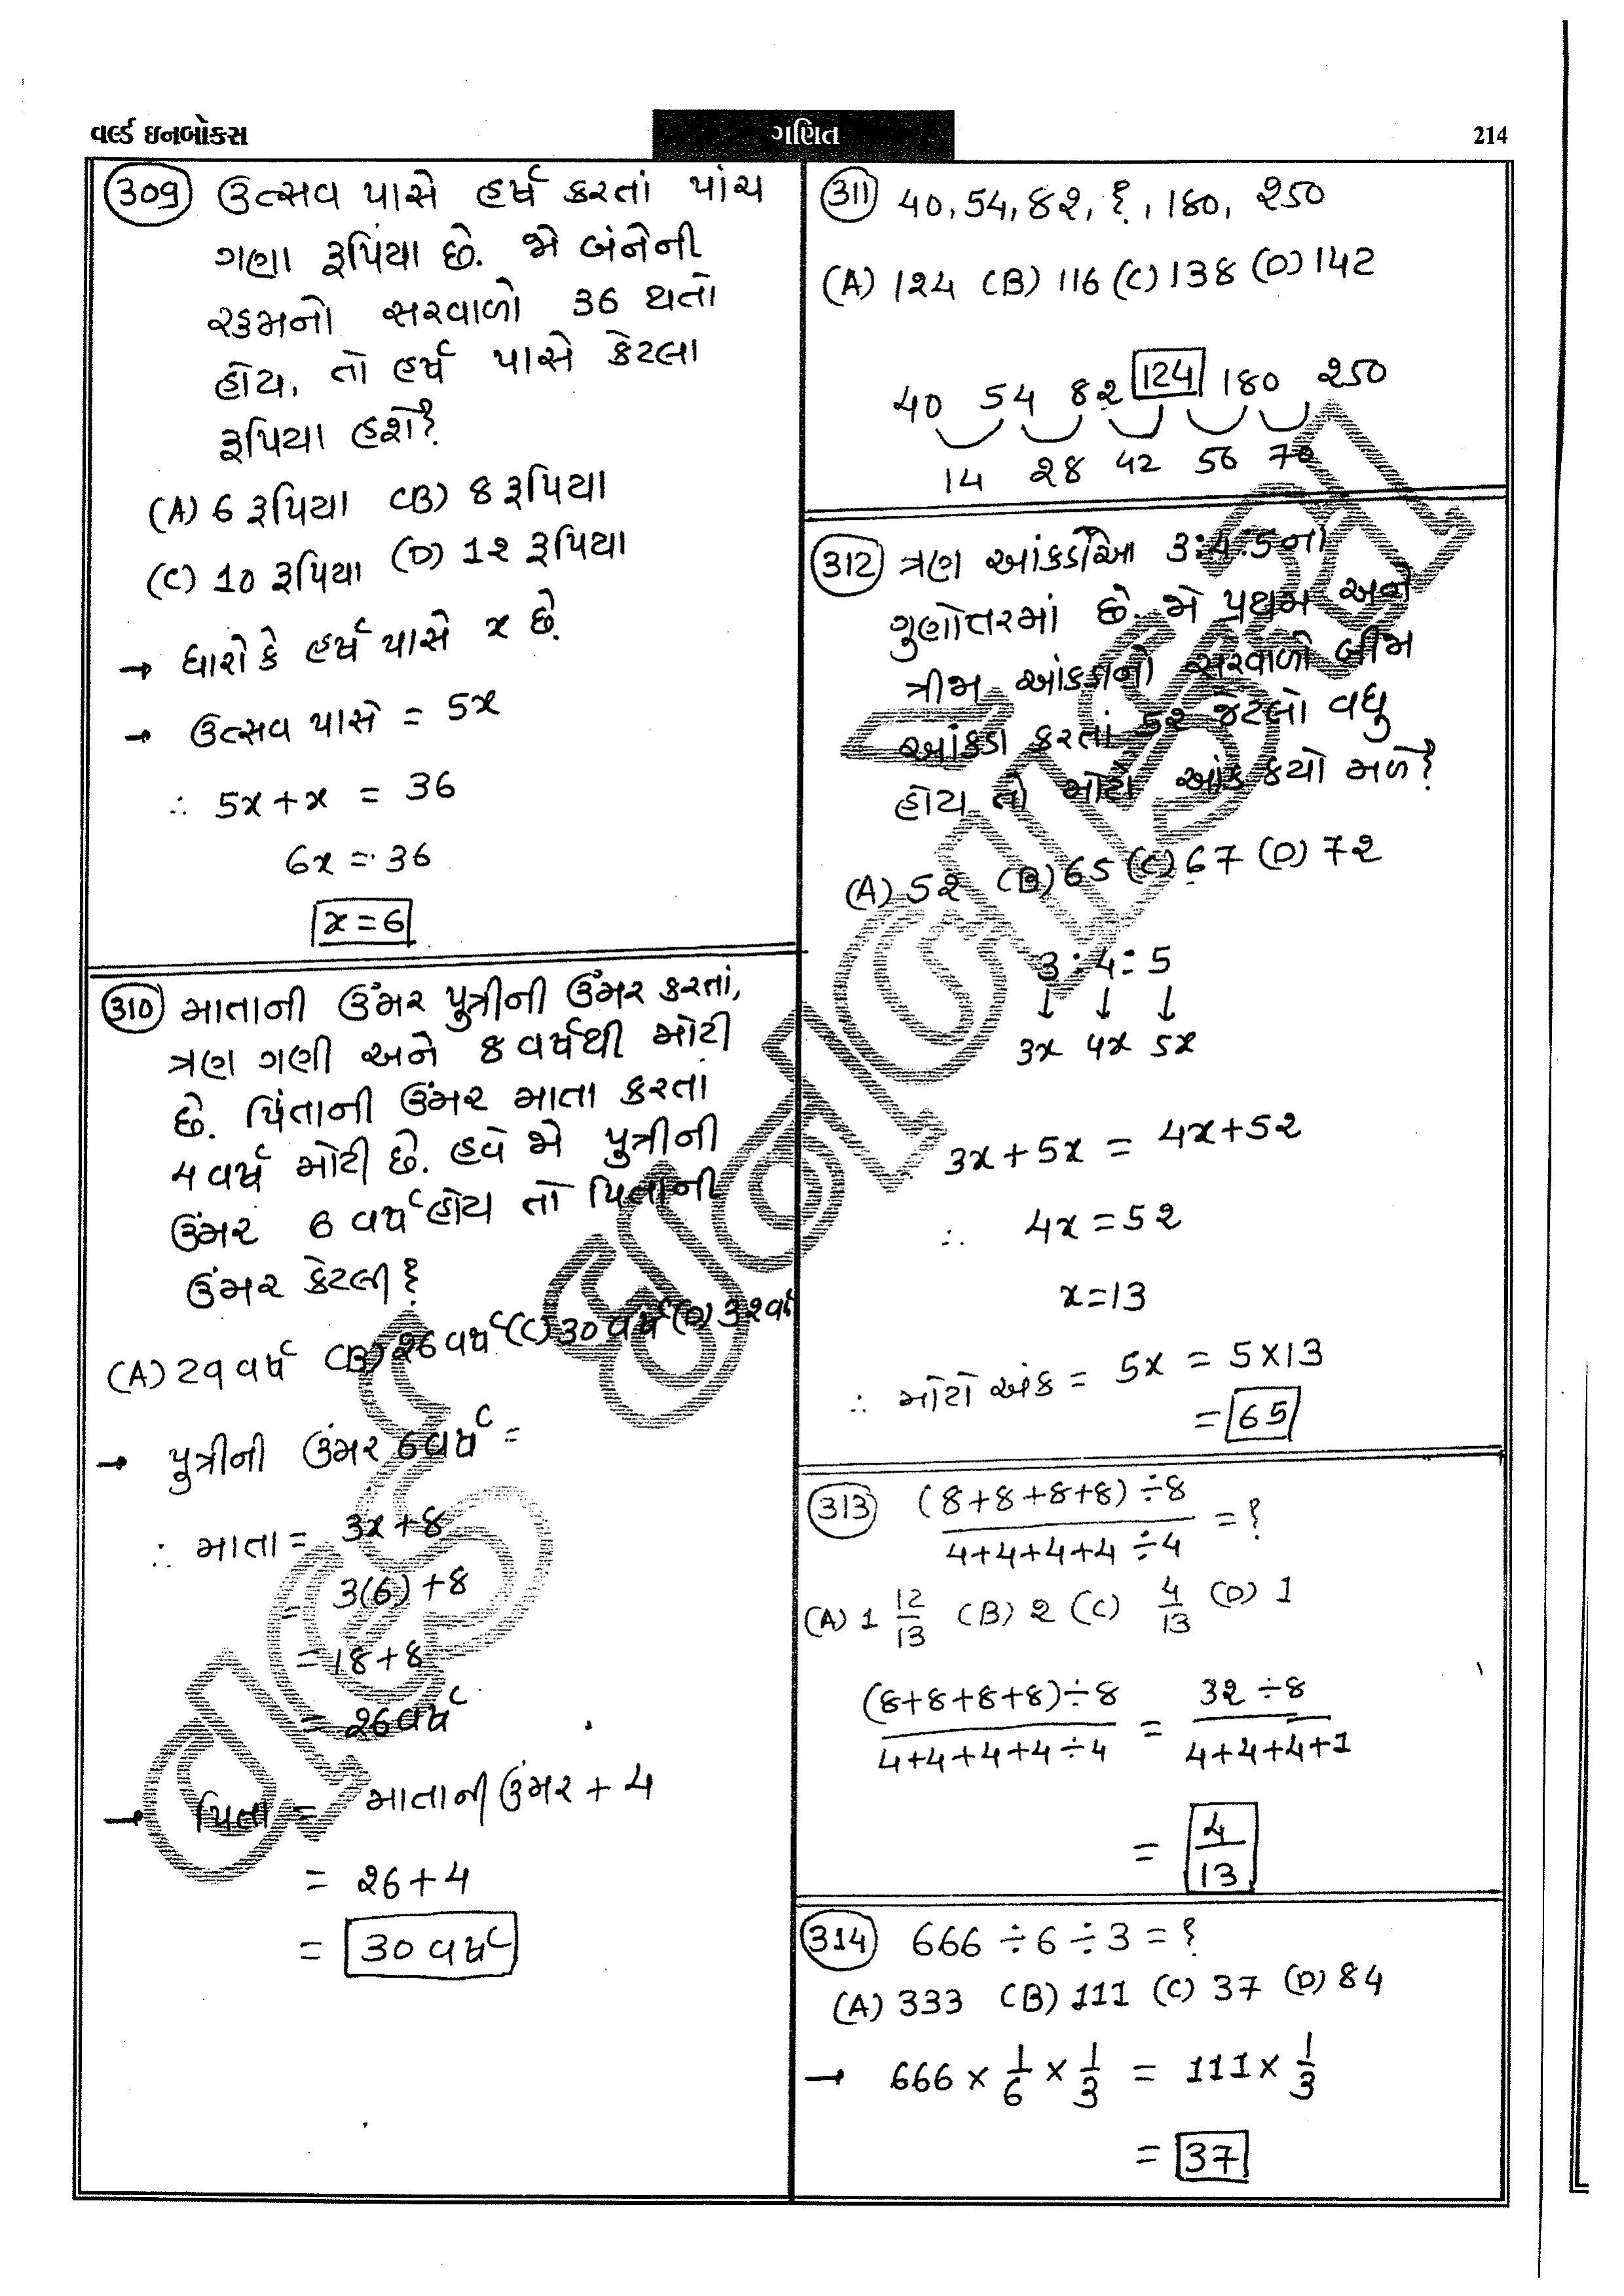 વર્લ્ડ ઇનબોક્સ
ગણિત
214
309 ઉત્સવ પાસે હર્ષ કરતાં પાંચ
ગણા રૂપિયા છે. જો બંનેની
રકમનો સરવાળો 36 થતો
હોય, તો હર્ષ પાસે કેટલા
રૂપિયા હશે?
(A) 6 રૂપિયા (B) 8 રૂપિયા
(C) 10 રૂપિયા (D) 12 રૂપિયા
→ ધારો કે હર્ષ પાસે x છે.
→ ઉત્સવ પાસે = 5x
∴ 5x+x = 36
6x = 36
x = 6
310 માતાની ઉંમર પુત્રીની ઉંમર કરતાં,
ત્રણ ગણી અને 8 વર્ષથી મોટી
છે. પિતાની ઉંમર માતા કરતા
4 વર્ષ મોટી છે. હવે જો પુત્રીની
ઉંમર 6 વર્ષ હોય તો પિતાની
ઉંમર કેટલી?
(A) 29 વર્ષ (B) 26 વર્ષ (C) 30 વર્ષ (D) 32 વર્ષ
→ પુત્રીની ઉંમર 6 વર્ષ =
∴ માતા = 3x+8
= 3(6)+8
= 18+8
= 26 વર્ષ
→ પિતા = માતાની ઉંમર + 4
= 26+4
= 30 વર્ષ
311 40, 54, 82, ?, 180, 250
(A) 124 (B) 116 (C) 138 (D) 142
40 54 82 124 180 250
14 28 42 56 70
312 ત્રણ આંકડાઓ 3:4:5ના
ગુણોત્તરમાં છે. જો પ્રથમ અને
ત્રીજા આંકડાનો સરવાળો બીજા
આંકડા કરતાં 52 જેટલો વધુ
હોય તો મોટો આંક કયો મળે?
(A) 52 (B) 65 (C) 67 (D) 72
3 : 4 : 5
↓ ↓ ↓
3x 4x 5x
3x+5x = 4x+52
∴ 4x = 52
x = 13
∴ મોટો અંક = 5x = 5×13
= 65
313 (8+8+8+8)÷8
4+4+4+4÷4 = ?
(A) 1 12/13 (B) 2 (C) 4/13 (D) 1
(8+8+8+8)÷8 = 32÷8
4+4+4+4÷4 4+4+4+1
= 4/13
314 666 ÷6 ÷3 = ?
(A) 333 (B) 111 (C) 37 (D) 84
→ 666 × 1/6 × 1/3 = 111 × 1/3
= 37